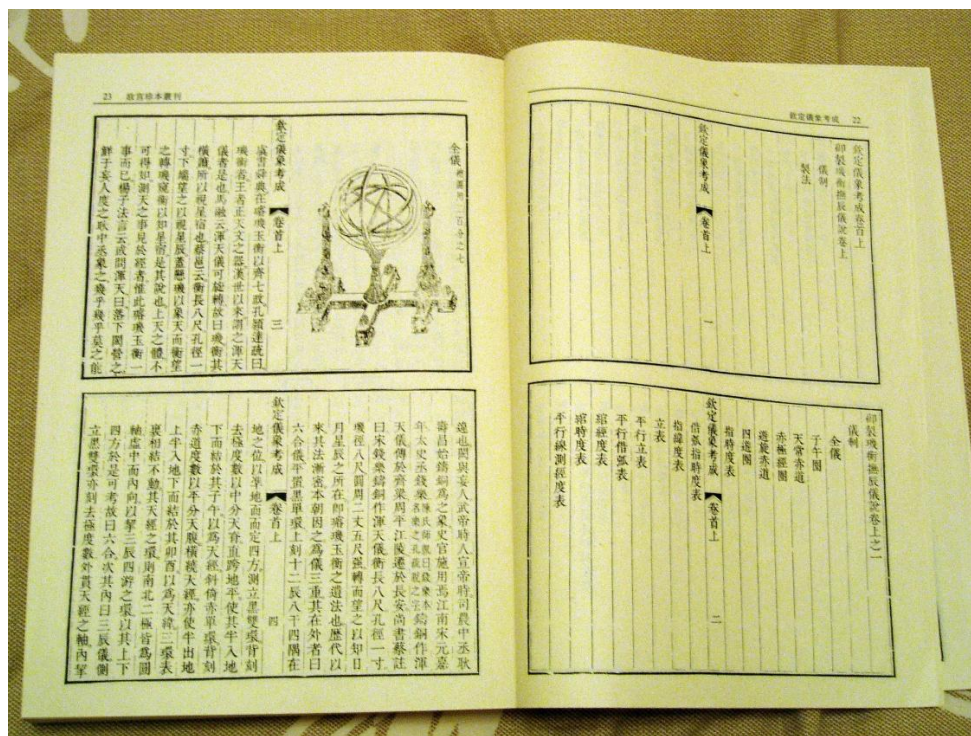 欽定儀象考成 22
欽定儀象考成卷首上
御製璣衡撫辰儀說卷上
儀制
製法
欽定儀象考成 卷首上 一
御製璣衡撫辰儀說卷上之一
儀制
全儀
子午圈
天常赤道
赤極經圈
遊旋赤道
四遊圈
指時度表
欽定儀象考成 卷首上 二
借弧指時度表
指緯度表
立表
平行立表
平行借弧表
綰經度表
綰時度表
平行線測經度表
23 故宮珍本叢刊
全儀
欽定儀象考成 卷首上 三
虞書舜典在璿璣玉衡以齊七政孔穎達疏曰
璣衡者王者正天文之器漢世以來謂之渾天
儀者是也馬融云渾天儀可旋轉故曰璣衡其
橫簫所以視星宿也蔡邕云衡長八尺孔徑一
寸下端望之以視星辰蓋懸璣以象天而衡望
之轉璣窺衡以知星宿是其說也上天之體不
可得知測天之事見於經者惟此璿璣玉衡一
事而已楊子法言云或問渾天曰落下閎營之
鮮于妄人度之耿中丞象之幾乎幾乎莫之能
違也閎與妄人武帝時人宣帝時司農中丞耿
壽昌始鑄銅為之象史官施用焉江南宋元嘉
年太史丞錢樂鑄銅作渾
天儀傳於齊梁周平江陵遷於長安尚書蔡註
曰宋錢樂鑄銅作渾天儀衡長八尺孔徑一寸
璣徑八尺圓周二丈五尺強轉而望之以知日
月星辰之所在即璿璣玉衡之遺法也歷代以
來其法漸密本朝因之為儀三重其在外者曰
六合儀平置黑單環上刻十二辰八干四隅在
欽定儀象考成 卷首上 四
地之位以準地面而定四方測立黑雙環背刻
去極度數以中分天脊直跨地平使其半入地
下而結於其子午以為天經斜倚赤單環背刻
赤道度數以平分天腹橫繞天經亦使半出地
上半入地下而結於其卯酉以為天緯三環表
裏相結不動其天經之環則南北二極皆為圓
軸虛中而內向以挈三辰四游之環以其上下
四方於是可考故曰六合次其內曰三辰儀側
立黑雙環亦刻去極度數外貫天經之軸內挈